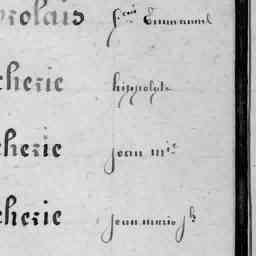 rolais fcois Emmanuel
cherie hippolyte
cherie jean mie
cherie jean marie jh